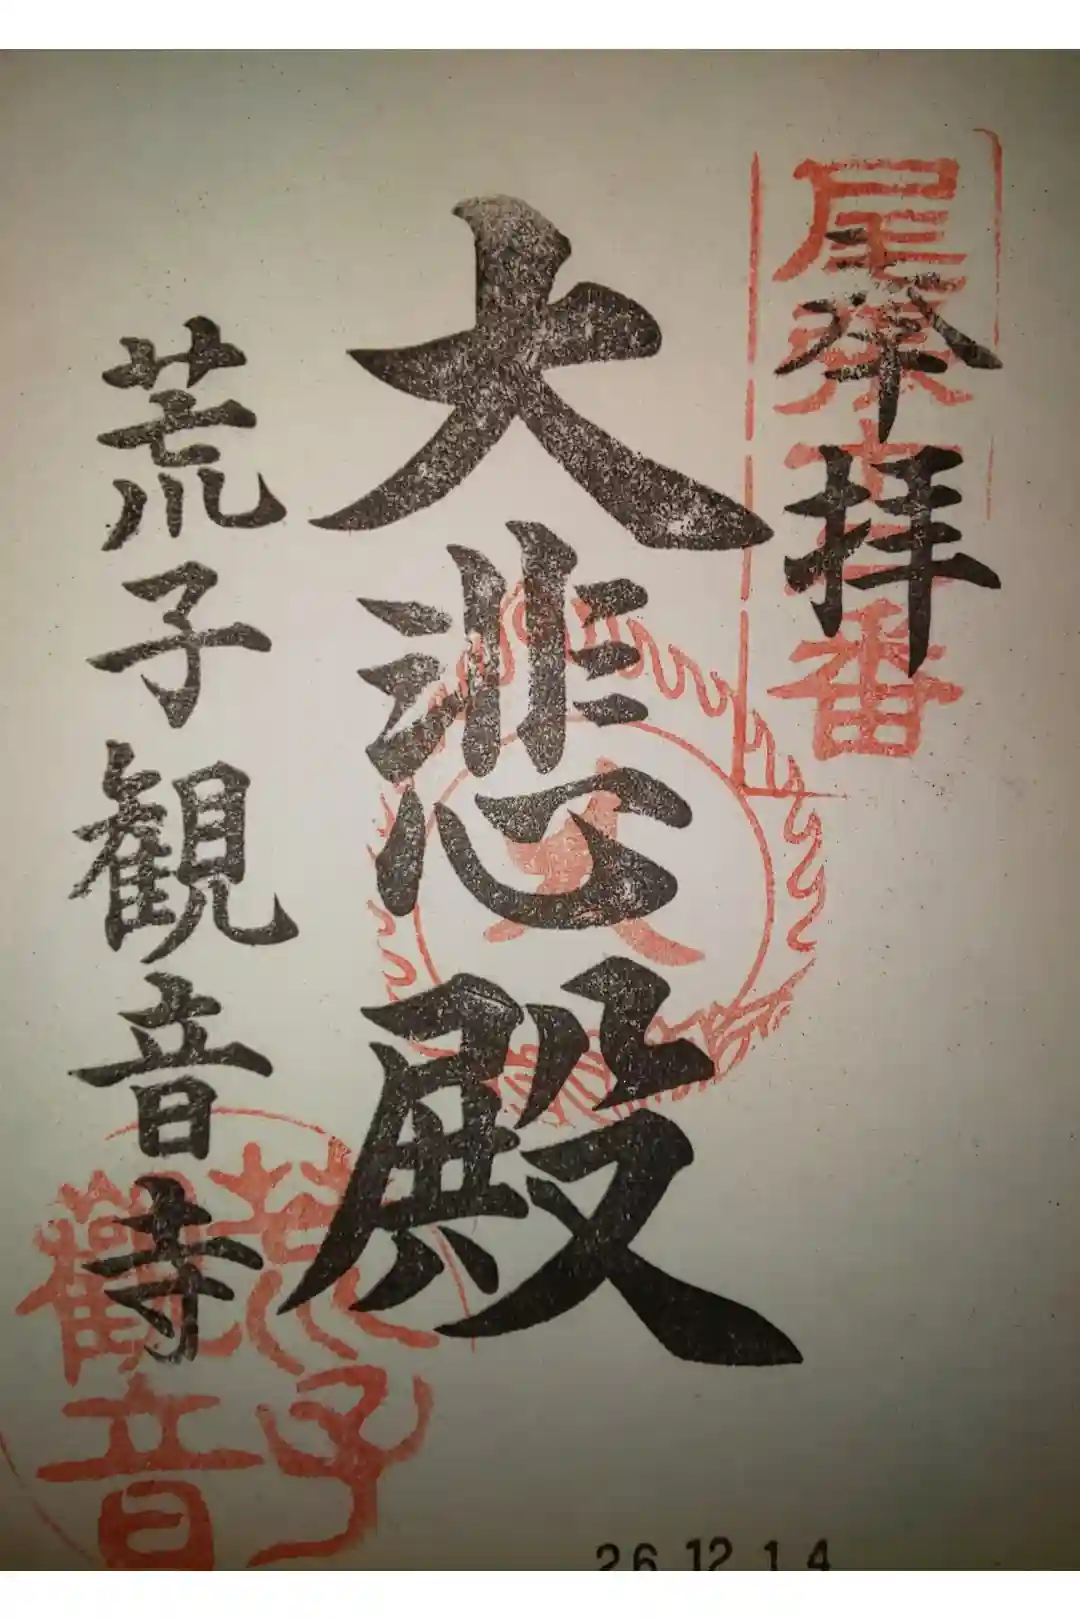 奉拝
大悲殿
荒子観音寺
荒子
觀音
26.12.14